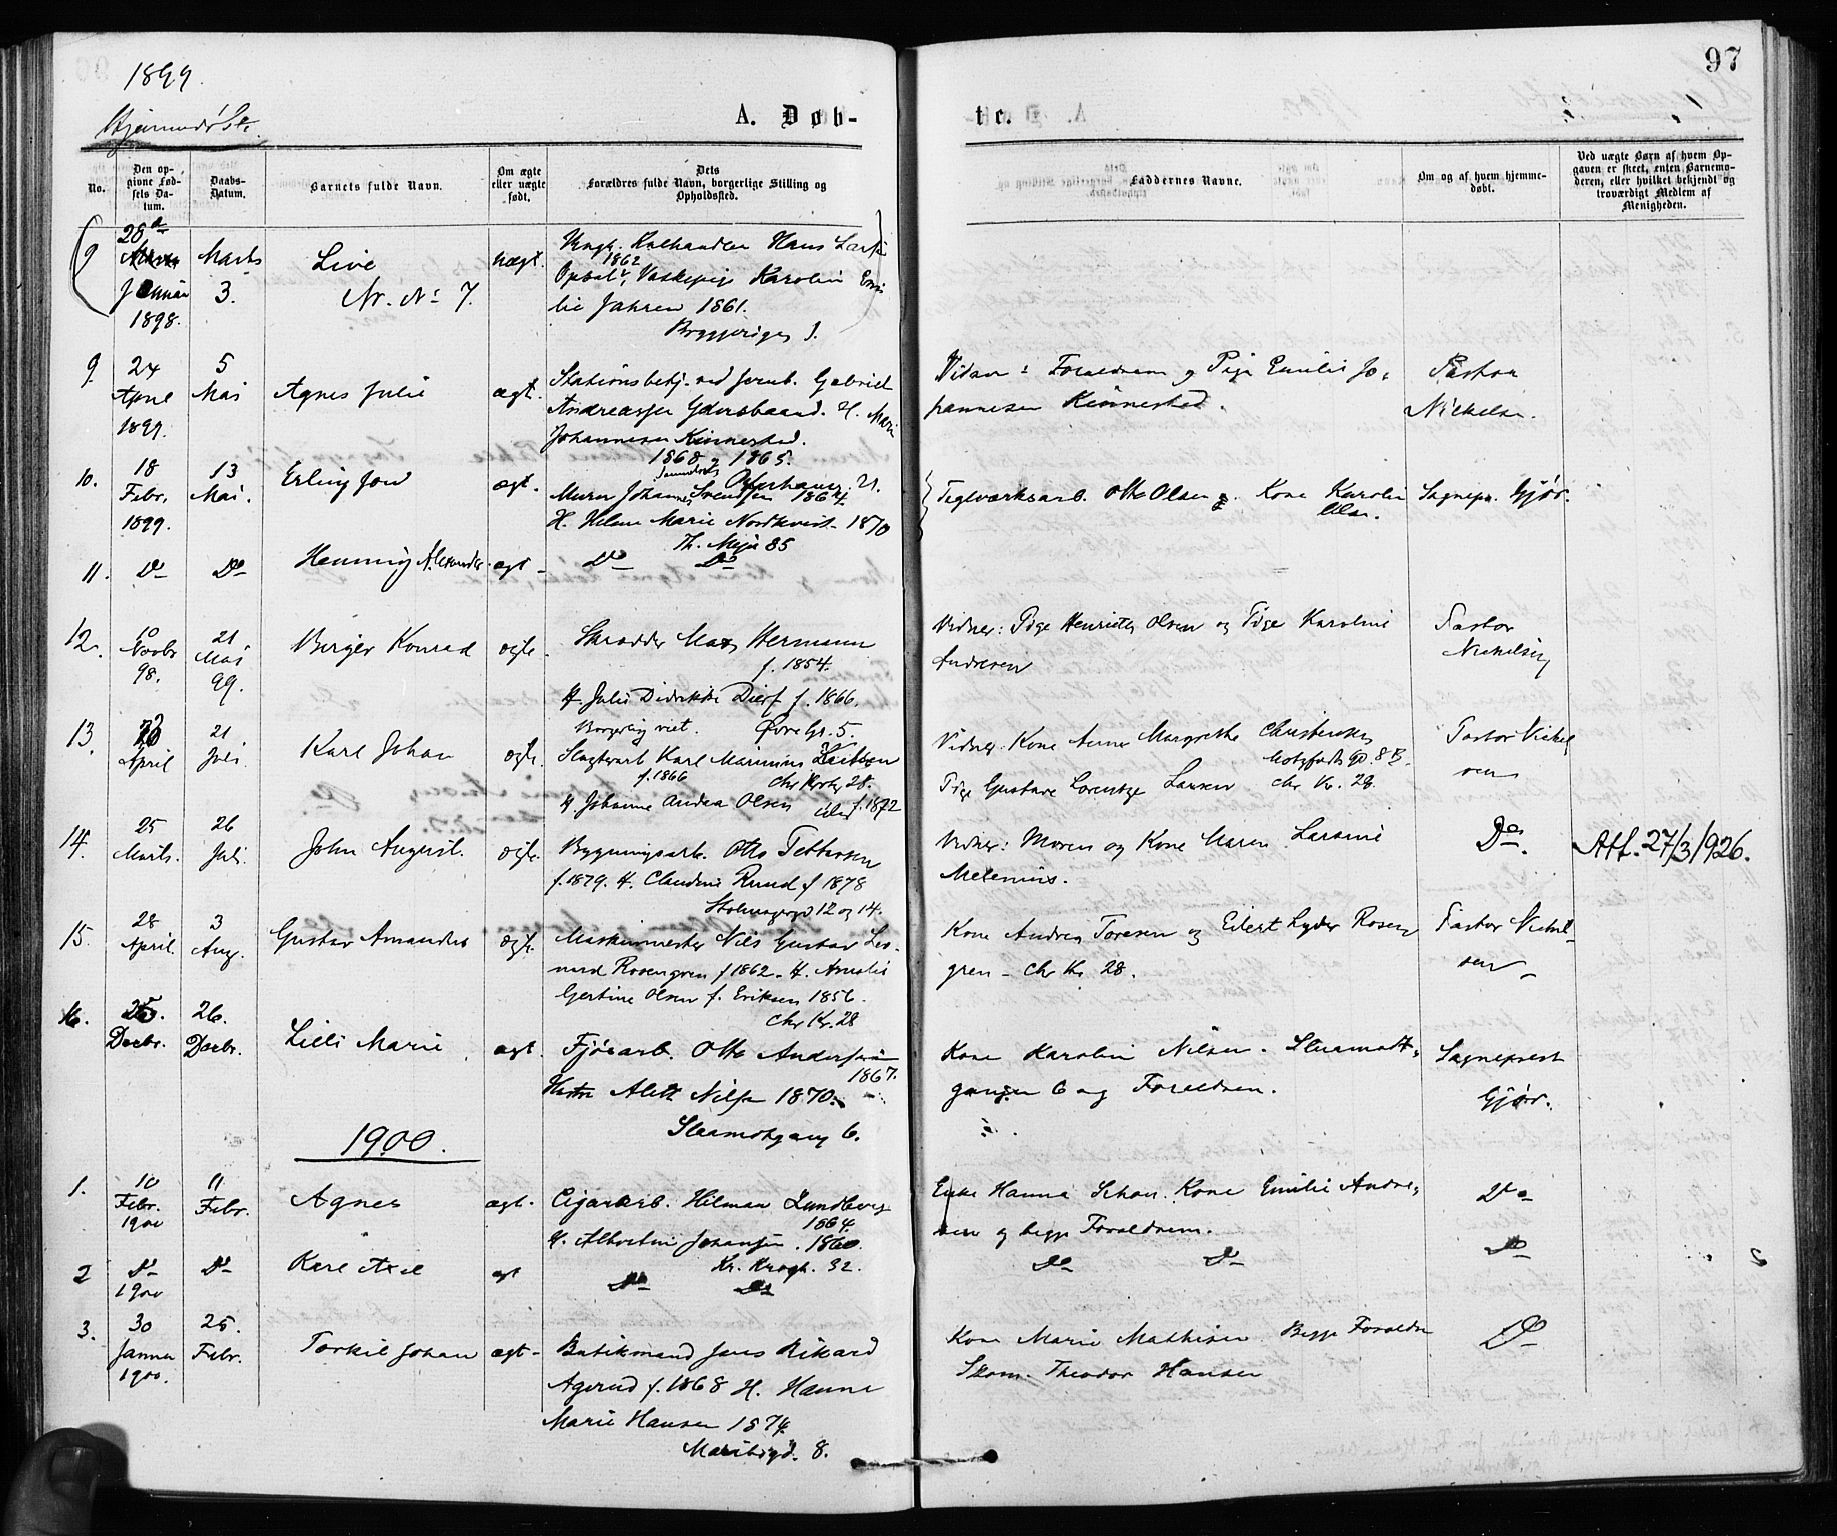 1899.
97
Hjemmedøbte.
A. Døb-
te.
No.
Den op-
givne Fød-
sels Da-
tum.
Daabs-
Datum.
Barnets fulde Navn.
Om ægte
eller uægte
født.
Dets
Forældres fulde Navn, borgerlige Stilling og
Opholdssted.
Faddernes Navne.
Om og af hvem hjemme-
døbt.
Ved uægte Børn af hvem Op-
gaven er skeet, enten Barnemo-
deren, eller hvilket bekjendt og
troværdigt Medlem af
Menigheden.
9
28de
Januar
1898.
Marts
3.
Live
Nr. No 7.
uægt.
Ungk. Kulhandler Hans Larsen
1862
Opsal, Vaskepige Karolin Emi
lie Jahren 1861.
Bryggerigd 1.
9.
24
April
1899.
5
Mai
Agnes Julie
ægt.
Stationsbetj. ved Jernb. Gabriel
Andreassen Gdersbaand. H. Marie
Johannesen Kinnestad.
1868 og 1865.
Vidner: Forældrene og Pige Emilie Jo-
hannesen Kinnestad.
Pastor
Nickelsen.
10.
18
Febr.
1899.
13
Mai.
Erling Jon
ægt.
Murer Johannes Svendsen 1864
H. Helene Marie Nordkvist 1870
Th. Meje 85
Teglværksarb. Otto Olsen og Kone Karolin
Olsen.
Sognepr. Gjør.
11.
Do
Do
Henning Alexander
ægt
Do Do
12.
10
Novbr
98.
21
Mai
99.
Birger Konrad
ægte.
Skrædder Max Hermann
f. 1854.
H. Julie Didrikke Dierf f. 1866.
Borgerlig viet. Øvre Gr. 5.
Vidner: Pige Henriette Olsen og Pige Karoline
Andresen
Pastor
Nickelsen
13.
April
21
Juli
Karl Johan
ægte.
Slagterarb Karl Marinius
f. 1866 Chr Krohg 28.
H. Johanne Andrea Olsen f. 1872
Vidner: Kone Anne Margrethe Christensen
Motzfeldts Gd. 8 B.
Pige Gustave Lorentze Larsen Chr Kr. 28.
Pastor Nickel
sen
14.
25
Marts.
26
Juli.
John August.
ægte.
Bygningsarb. Otto Pettersen
f. 1879. H. Claudine Ruud f 1878
Stolmagergd 12 og 14.
Vidner: Moren og Kone Maren Larsine
Meienius.
Do.
Att. 27/3/926.
15.
28
April.
3
Aug.
Gustav Amandus
ægte.
Maskinmester Nils Gustav Leo-
nard Rosengren f 1862. H. Amalie
Gertine Olsen f. Eriksen 1856.
Chr Kr. 28
Kone Andrea Toresen og Eilert Lyder Rosen
gren – Chr Kr 28.
Pastor Nickel-
sen
16.
25.
Decbr.
26.
Decbr.
Lilli Marie
ægt.
Fjøsarb. Otto Andersen
1867.
Hustru Alett Nilsen 1870.
Steamotgang 6.
Kone Karolin Nilsen. Steamott-
gangen 6 og Forældren.
Sogneprest
Gjør.
1900.
1.
10
Febr.
1900
11
Febr.
Agnes
ægt.
Cigararb. Hilmar Lundberg
1864.
H. Albertine Johansen. 1860.
Kr. Krogh. 32.
Enke Hanna Schou. Kone Emilie Andre-
sen og begge Forældrene.
Do
2
Do
1900
Do
Karl Axel
ægt
Do Do
Do Do
Do
3.
30
Januar
1900.
25.
Febr.
Torkil Johan
ægt
Butikmand Jens Rikard
Agerud f. 1868 H. Hanne
Marie Hansen 1874
Maribogd. 8.
Kone Marie Mathisen Begge Forældre
Skom. Theodor Hansen
Do